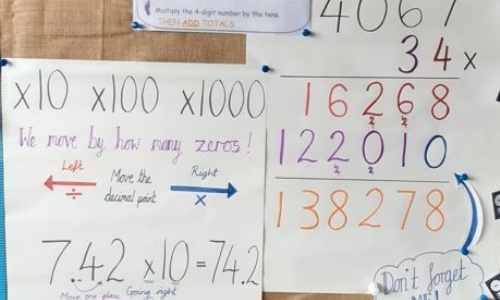 Multiply the 4-digit number by the tens
THEN ADD TOTALS
4067
34 x
16268
2 2
122010
2 2
138278
Don't forget
x10 x100 x1000
We move by how many zeros!
Left Right
Move the
decimal point
÷ x
7.42 x10 = 74.2
Move one place Going right